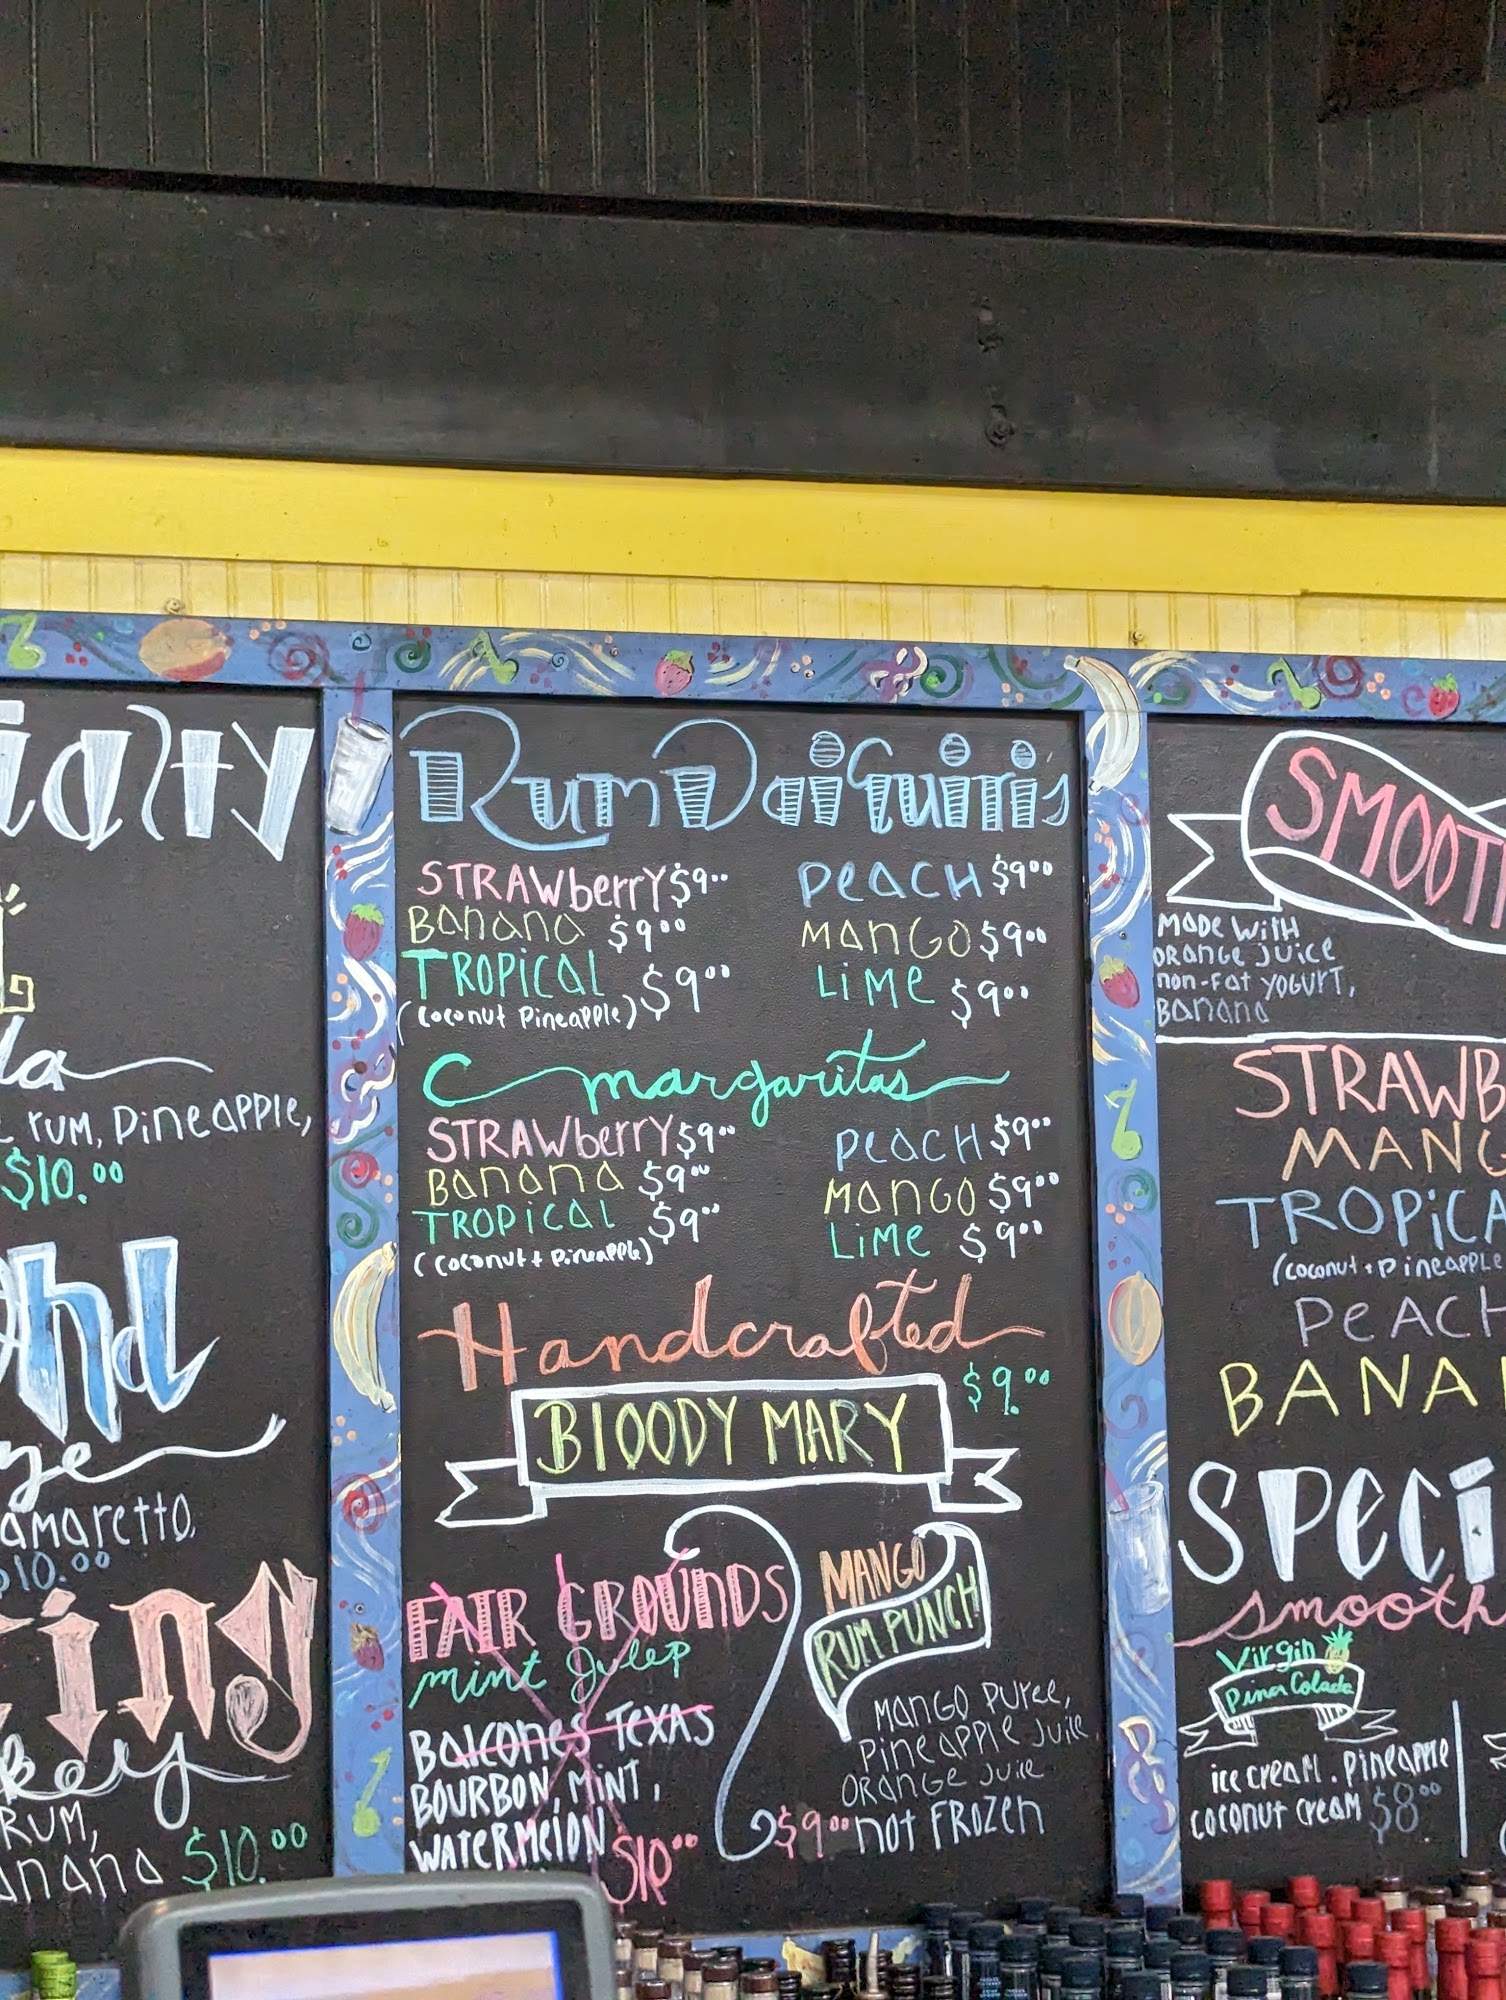 Rum Daiquiri's
STRAWberry $9.00
Banana $9.00
TROPICAL $9.00
(coconut Pineapple)
Peach $9.00
Mango $9.00
Lime $9.00
margaritas
STRAWberry $9.00
Banana $9.00
TROPICAL $9.00
(coconut + Pineapple)
Peach $9.00
Mango $9.00
Lime $9.00
Handcrafted
$9.00
BLOODY MARY
FAIR GROUNDS
mint Julep
Balcones Texas
Bourbon, Mint,
Watermelon $10.00
MANGO
RUM PUNCH
Mango Puree,
Pineapple Juice,
Orange Juice
$9.00 not Frozen
rum, Pineapple,
$10.00
amaretto,
$10.00
RUM,
$10.00
Made with
orange juice
non-fat yogurt,
Banana
(coconut + Pineapple
Peach
Virgin
Pina Colada
ice cream. Pineapple
coconut cream $8.00